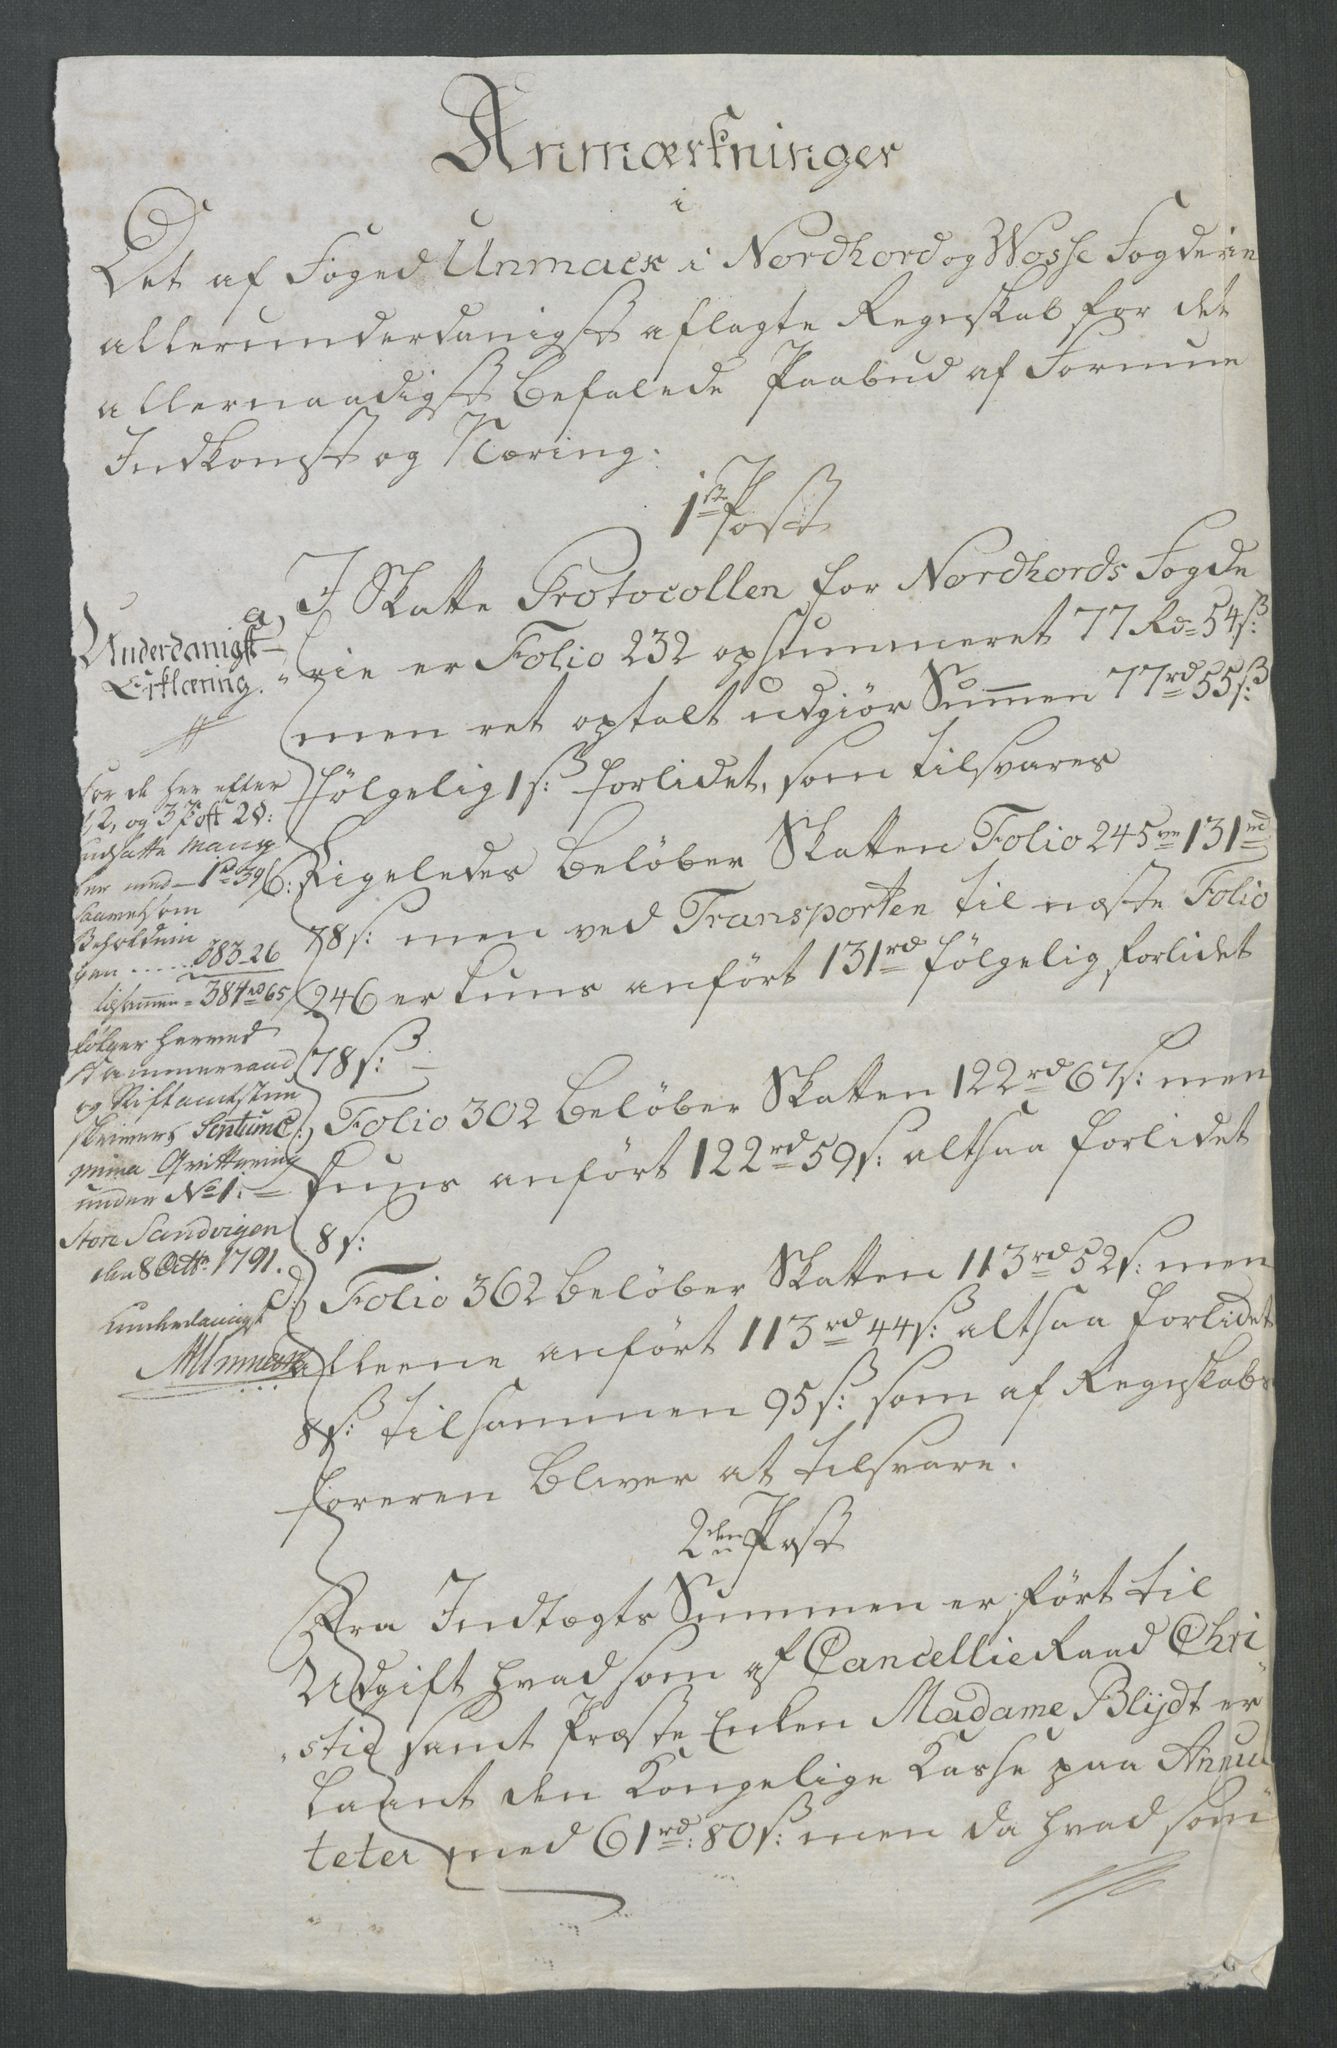 Anmærkninger
i
Det af Foged Unmack i Nordhord og Wosse Fogderie
allerunderdanigst aflagte Regnskab for det
allernaadigst befalede Paabud af Formue
Indkomst og Næring.
1ste Post
a,
I Skatte Protocollen for Nordhords Fogde
rie er Folio 232 opsummeret 77 Rd 54 s:
men ret optalt udgiör Summen 77 rd 55 s:
fölgelig 1 s: forlidet, som tilsvares
b: Ligeledes belöber Skatten Folio 245 131 rd
78 s: men ved Transporten til næste Folio
246 er kuns anfört 131 rd fölgelig forlidet
78 s:
c:, Folio 302 belöber Skatten 122 rd 67 s: men
kuns anfört 122 rd 59 s: altsaa forlidet
8 s:
d:, Folio 362 belöber Skatten 113 rd 52 s: men
alleene anfört 113 rd 44 s: altsaa forlidet
8 s: tilsammen 95 s: som af Regnskabs
föreren bliver at tilsvare.
2den Post
Fra Indtægts Summen er fört til
Udgift hvad som af Cancellie Raad Chri
stie samt Præste Enken Madame Blijdt er
laant den Kongelige Kasse paa Annui
teter med 61 rd: 80 s: men da hvad som
Underdanigst
Erklæring.
For de her efter
1, 2, og 3 Post 2d:
udsatte Mang
ler med 1 rd 39
saavelsom
Beholdnin
gen ..... 383 - 26
tilsammen = 384 rd 65
fölger herved
Kammerraad
og Stiftamtstue
skrivers
Qvittering
under No 1:
Store Sandvigen
den 8 Octbr 1791.
underdanigst
Unmack